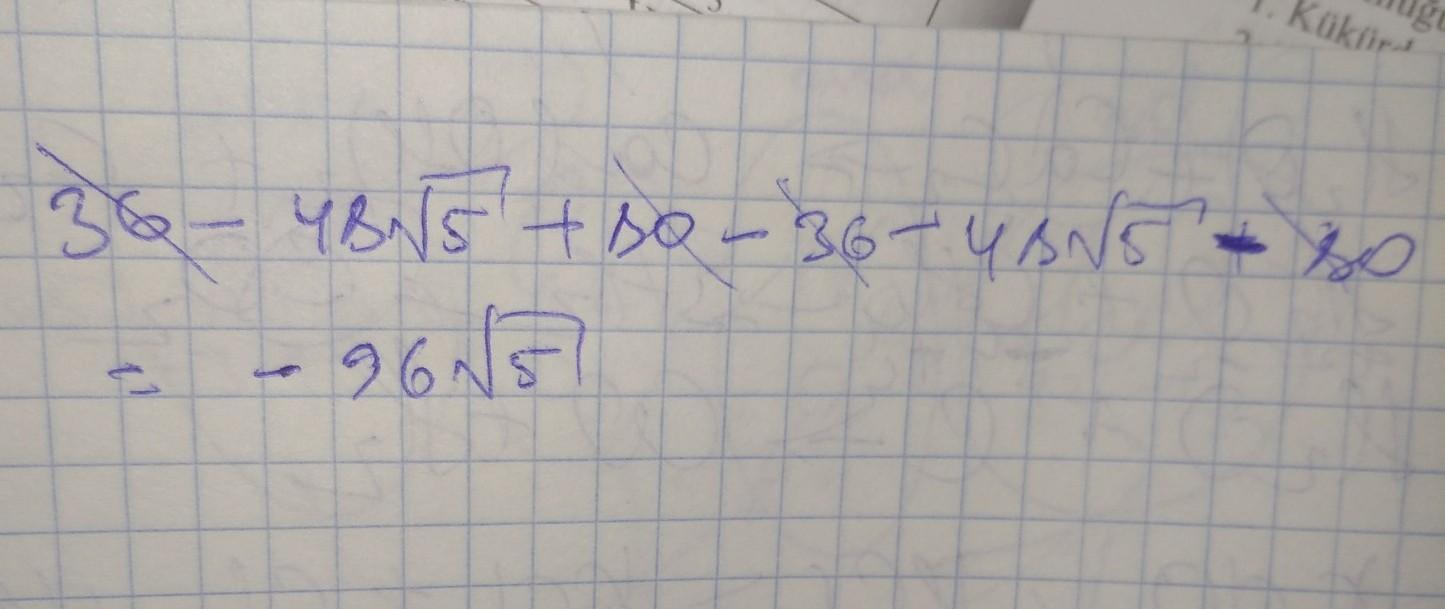 1. Kükürd
36 - 48√5 + 80 - 36 - 48√5 - 80
= - 96√5